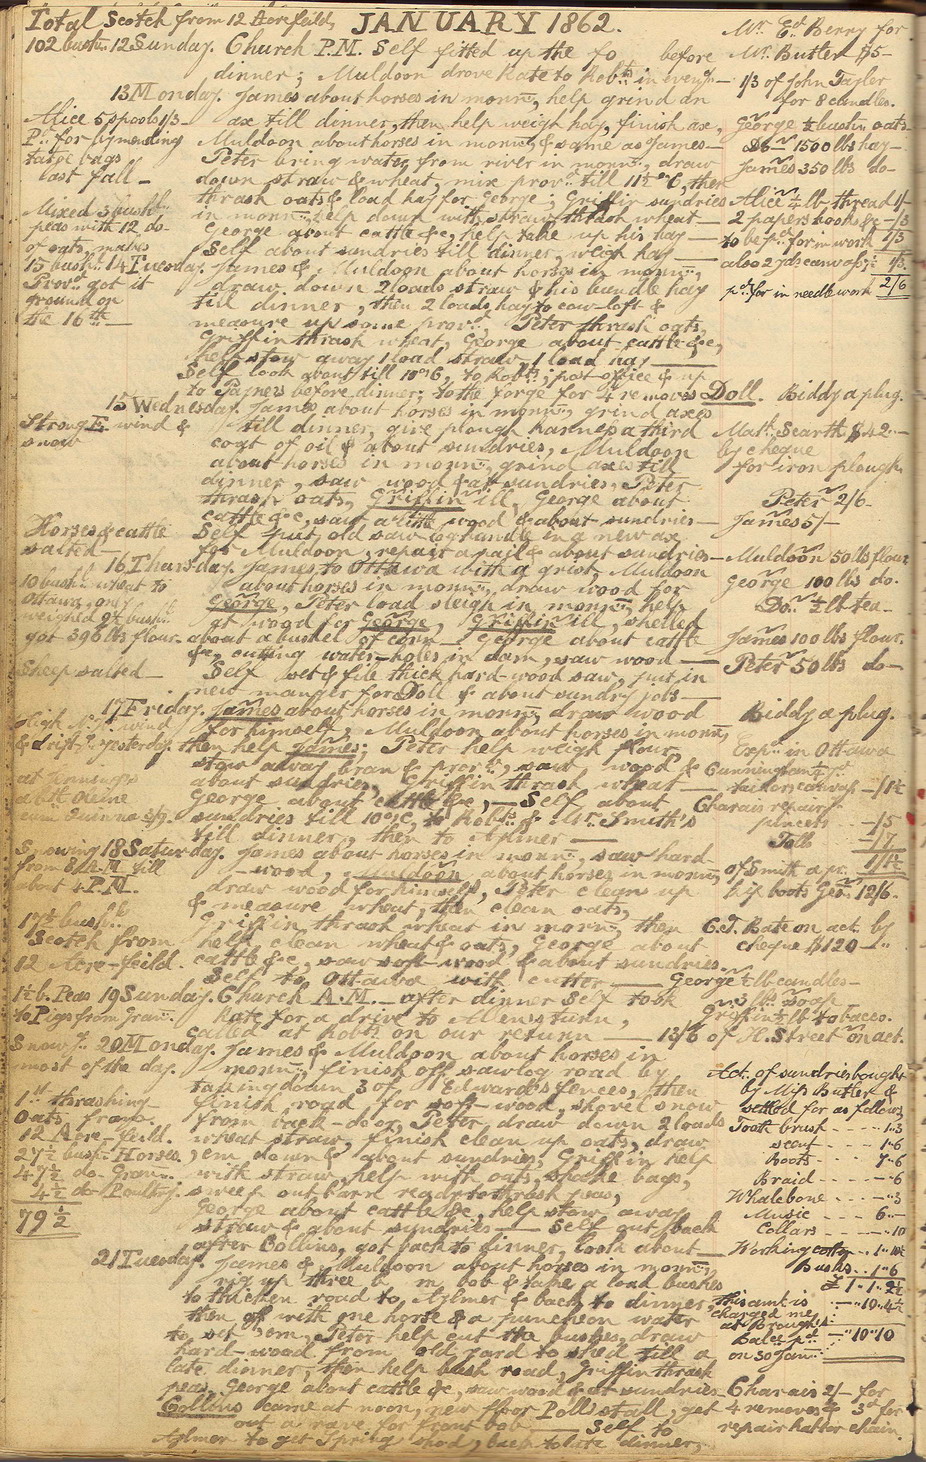 Total Scotch from 12 Acrefeild, JANUARY 1862. Mr. Ed. Berry for
102 bushs. 12 Sunday. Church P.M. Self fitted up the before Mr. Butler $5-
dinner; Muldoon drove Kate to Robts. in eveng- 1/3 of John Taylor
13 Monday. James about horses in mornng, help grind an for 8 candles.
Alice 5 spools 1/3- ax till dinner, then help weigh hay, finish ax, George ½ bushl. oats
Pd. for by mending Muldoon about horses in mornng, & same as James- 1500 lbs hay-
large bags Peter bring water, from river in mornng, draw James 350 lbs do-
last fall- down straw & wheat, mix provr. till 11½ o'C, then
thrash oats & load hay for George; Griffin sundries Alice ¼ lb. thread 1/-
Mixed 3 bushls. in mornng, help down with straw, thrash wheat- 2 papers hooks &c -/3
peas with 12 do- George about cattle &c, help take up his hay- to be pd. for in work 1/3
of oats, makes Self about sundries till dinner, weigh hay- also 2 yds canvass 1/3.
15 bushls. 14 Tuesday. James & Muldoon about horses in mornng, 2/6
Provr. got it draw down 2 loads straw & his bundle hay pd. for in needlework
ground on till dinner, then 2 loads hay to cow-loft &
the 16th- measure up some provr., Peter thrash oats,
Griffin thrash wheat, George about cattle &c,
help stow away 1 load straw, 1 load hay-
Self look about till 10 o'C, to Robts., post office & up
to Payne's before dinner; to the forge for 4 removes Doll. Biddy a plug.
15 Wednesday. James about horses in mornng, grind axes
Strong E. wind & till dinner, give plough harness a third Matt. Searth $42-
snow coat of oil & about sundries, Muldoon by cheque
about horses in mornng, grind axes till for iron plough.
dinner, saw wood & at sundries, Peter
thrash oats, Griffin ill, George about Peter 2/6-
cattle &c, saw a little wood & about sundries- James 5/-
Horses & cattle Self put old saw log handle in a new ax
salted- for Muldoon, repair a pail & about sundries- Muldoon 50 lbs flour
16 Thursday. James to Ottawa with a grist, Muldoon George 100 lbs do.
10 bushl. wheat to about horses in mornng, draw wood for Do. ½ lb tea-
Ottawa, only George, Peter load sleigh in mornng, help
weighed 9½ bushl. at wood for George, Griffin ill, shelled James 100 lbs flour.
got 396 lbs flour. about a bushel of corn George about cattle Peter 50 lbs do-
&c, cutting water-holes in dam, saw wood-
Sheep salted- Self set & file thick hard-wood saw, put in
new manger for Doll & about sundry jobs-
17 Friday. James about horses in mornng, draw wood Biddy a plug.
High wind for himself, Muldoon about horses in mornng,
& drift yesterday then help James; Peter help weigh flour, Expns. in Ottawa
stow away bran & provr., saw wood & Cunningham
about sundries, Griffin thrash wheat- canvass -/1½
George about cattle &c,- Self about Charais repair
sundries till 10 o'C, to Robts. & Mr. Smith's pincers - -/5
till dinner, then to Aylmer- Tolls -/7
Snowing 18 Saturday. James about horses in mornng, saw hard- 1/1½
from 8 A.M. till wood, Muldoon about horses in mornng, of Smith a pr.
about 4 P.M. draw wood for himself, Peter clean up kip boots Geo. 12/6-
& measure wheat, then clean oats,
17½ bushls. Griffin thrash wheat in mornng, then C.T. Bate on act. by
Scotch from help clean wheat & oats, George about cheque $120-
12 Acre-feild. cattle &c, saw soft-wood & about sundries.
Self to Ottawa with cutter- George ½ lb candles-
1½ b. Peas 19 Sunday. Church A.M.- after dinner Self took 3 lbs. soap
to Pigs from Gran. Kate for a drive to Allen's turn, Griffin ½ lb tobacco.
called at Robts. on our return- 13/6 of H. Street on act.
Snowg. 20 Monday. James & Muldoon about horses in
most of the day. mornng, finish off sawlog road by Act. of sundries bought
taking down 3 of Edward's fences, then by Miss Butler &
1st. thrashing finish road for soft-wood, shovel snow settled for as follows,
Oats from from back-door, Peter draw down 2 loads Tooth brush - - - - 1..3
12 Acre-feild. wheat straw, finish clean up oats, draw scent - - - - 1..6
27½ bush. Horses. 'em down & about sundries, Griffin help Boots - - - 7..6
47½ do Gran. with straw, help with oats, shake bags, Braid - - - - - ..6
4½ do Poultry. sweep out barn ready to thrash peas, Whalebone - - - ..3
79½ George about cattle &c, help stow away Music - - - 6..-
straw & about sundries- Self out back Collars - - - ..10
after Collins, got back to dinner, look about- Working cotton - - 1..10½
21 Tuesday. James & Muldoon about horses in mornng, Busks - - 1..6
rig up three bob & take a load bushes £1..1..2½
to thicken road to Aylmer & back to dinner, This amt. is -..10..4½
then off with one horse & a puncheon water charged me
to set 'em, Peter help cut the bushes, draw at Brough's
hard-wood from old yard to shed till a Bales pd. -..10..10
late dinner, then help bush road, Griffin thrash on 30 Jan.
peas, George about cattle &c, saw wood & at sundries- Charais 2/- for
Collins came at noon, new floor Poll stall, get 4 removes & 3d for
out a rave for front bob- Self to repair halter chain.
Aylmer to get Spring shod, back to late dinner,